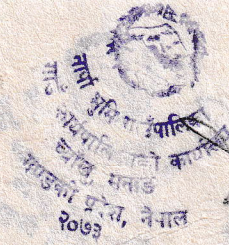 नार्पा भूमि गाउँपालिका
गाउँ कार्यपालिकाको कार्यालय
मनाङ
गण्डकी प्रदेश, नेपाल
२०७३